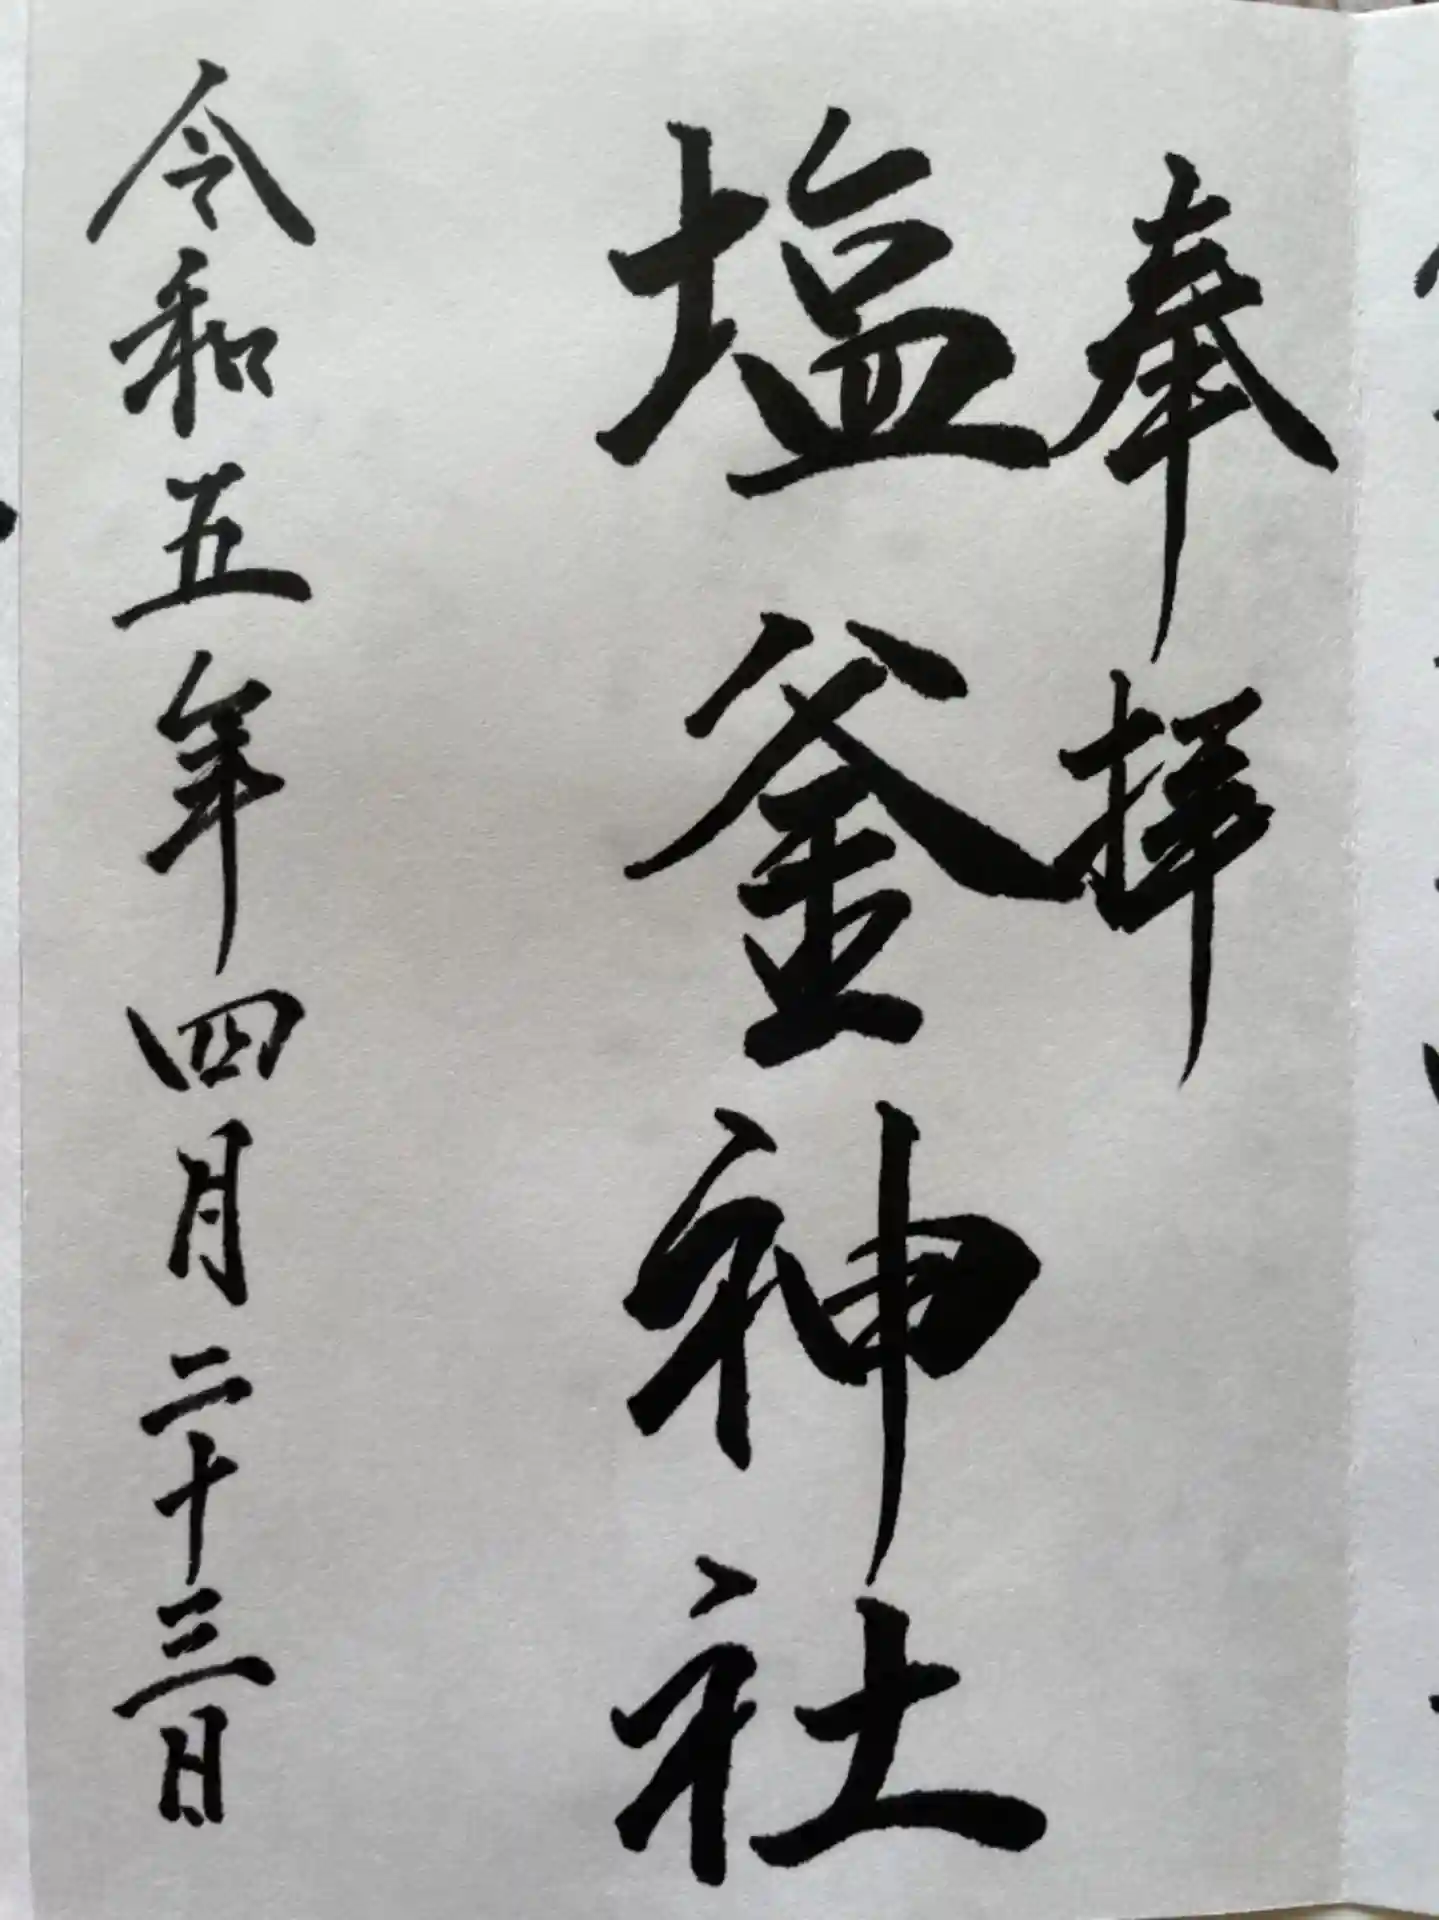 奉拝
塩釜神社
令和五年四月二十三日